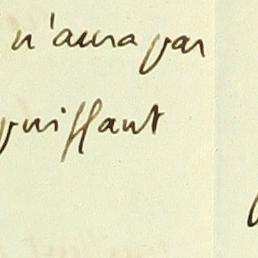 n'aura par
puissant